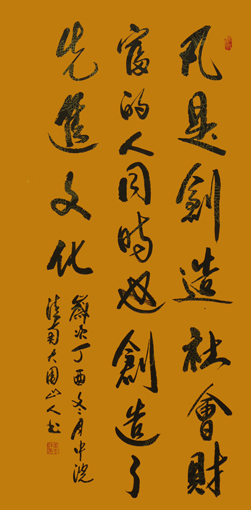 凡是創造社會財
富的人同時也創造了
先進文化
歲次丁酉冬月中浣
大围山人书